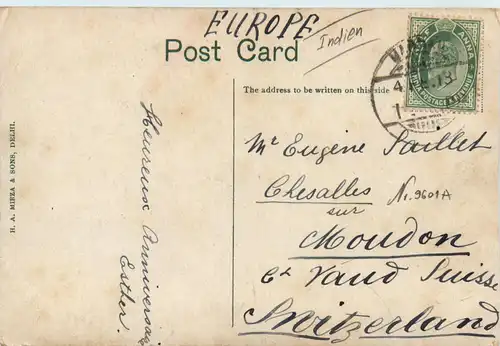 EUROPE
Indien
Post Card
The address to be written on this side
H. A. MIRZA & SONS, DELHI.
Heureux Anniversaire
Esther.
Mr Eugène Jaillet
Chesalles
Nr. 9601A
sur
Moudon
Ct Vaud Suisse
Switzerland
ANNA
INDIA POSTAGE & REVENUE